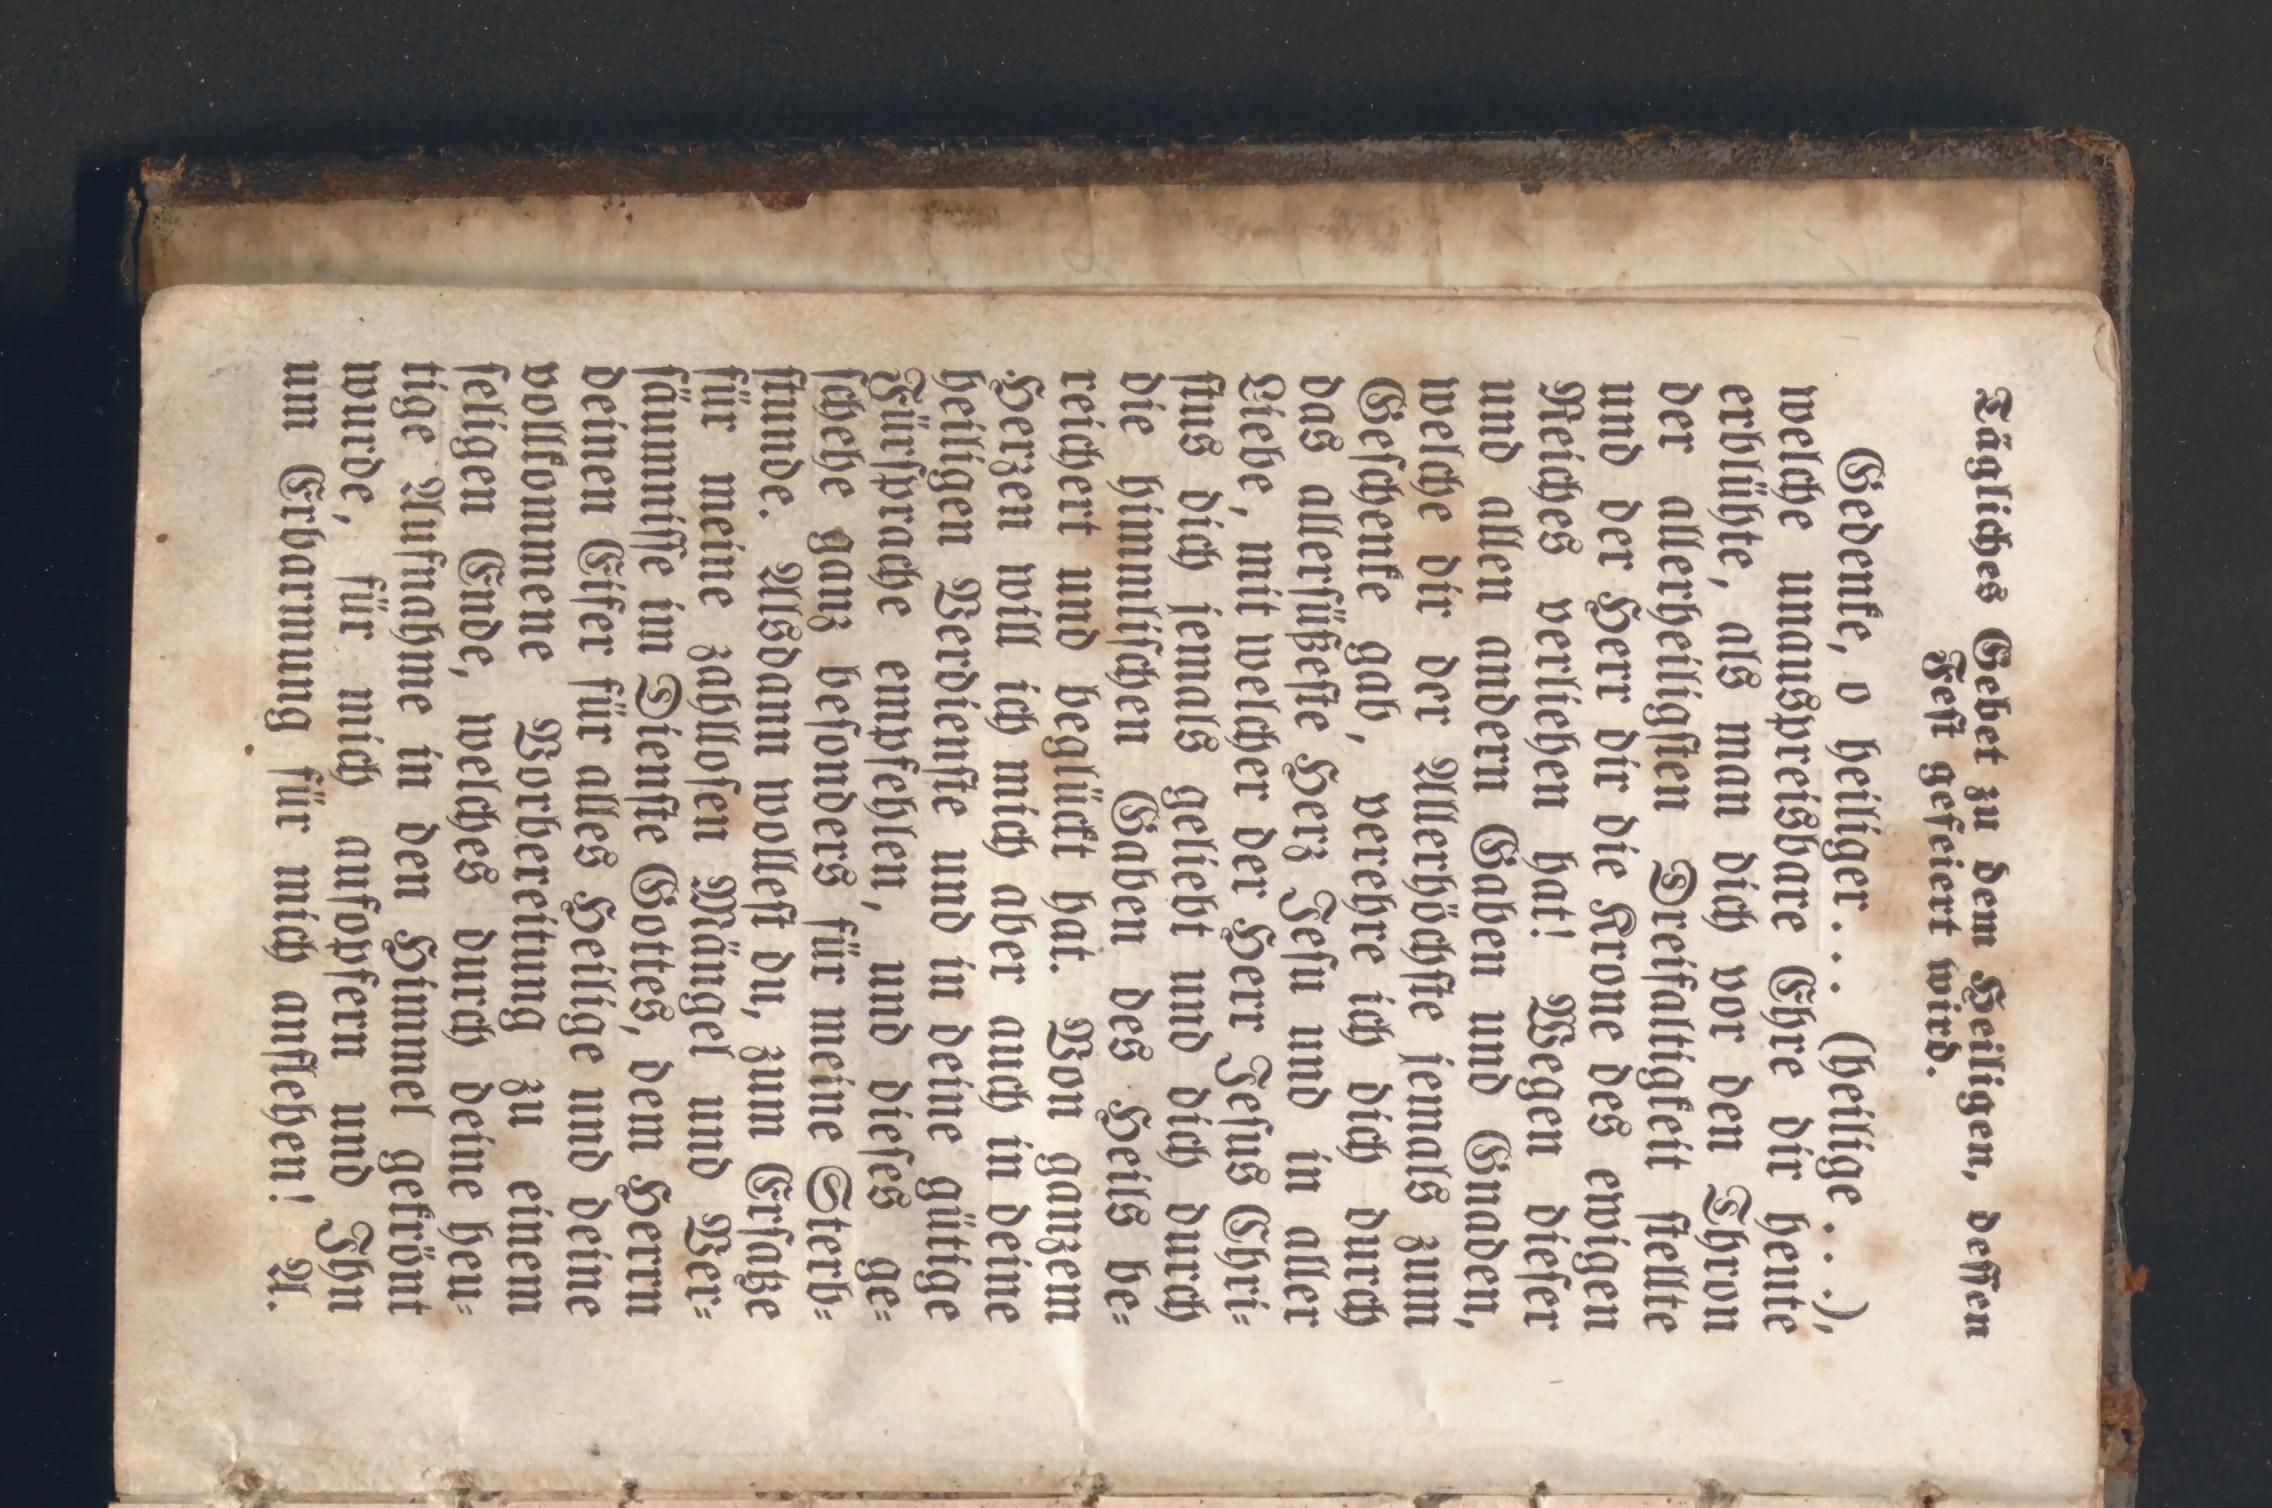 Tägliches Gebet zu dem Heiligen, dessen
Fest gefeiert wird.
Gedenke, o heiliger . . . . (heilige . . . .),
welche unauspreisbare Ehre dir heute
erblühte, als man dich vor den Thron
der allerheiligsten Dreifaltigkeit stellte
und der Herr dir die Krone des ewigen
Reiches verliehen hat! Wegen dieser
und allen andern Gaben und Gnaden,
welche dir der Allerhöchste jemals zum
Geschenke gab, verehre ich dich durch
das allersüßeste Herz Jesu und in aller
Liebe, mit welcher der Herr Jesus Chri-
stus dich jemals geliebt und dich durch
die himmlischen Gaben des Heils be-
reichert und beglückt hat. Von ganzem
Herzen will ich mich aber auch in deine
heiligen Verdienste und in deine gütige
Fürsprache empfehlen, und dieses ge-
schehe ganz besonders für meine Sterb-
stunde. Alsdann wollest du, zum Ersatze
für meine zahllosen Mängel und Ver-
säumnisse im Dienste Gottes, dem Herrn
deinen Eifer für alles Heilige und deine
vollkommene Vorbereitung zu einem
seligen Ende, welches durch deine heu-
tige Aufnahme in den Himmel gekrönt
wurde, für mich aufopfern und Ihn
um Erbarmung für mich anflehen! A.